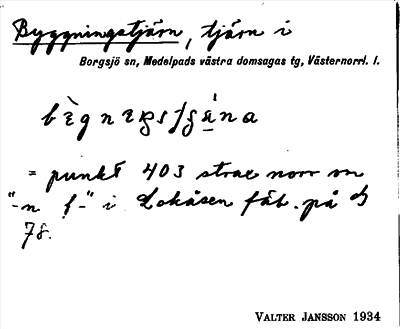 Byggningstjärn, tjärn i
Borgsjö sn, Medelpads västra domsagas tg, Västernorrl. l.
= punkt 403 strax norr om
"-n f-" i Lokåsen fäb. på
78.
VALTER JANSSON 1934